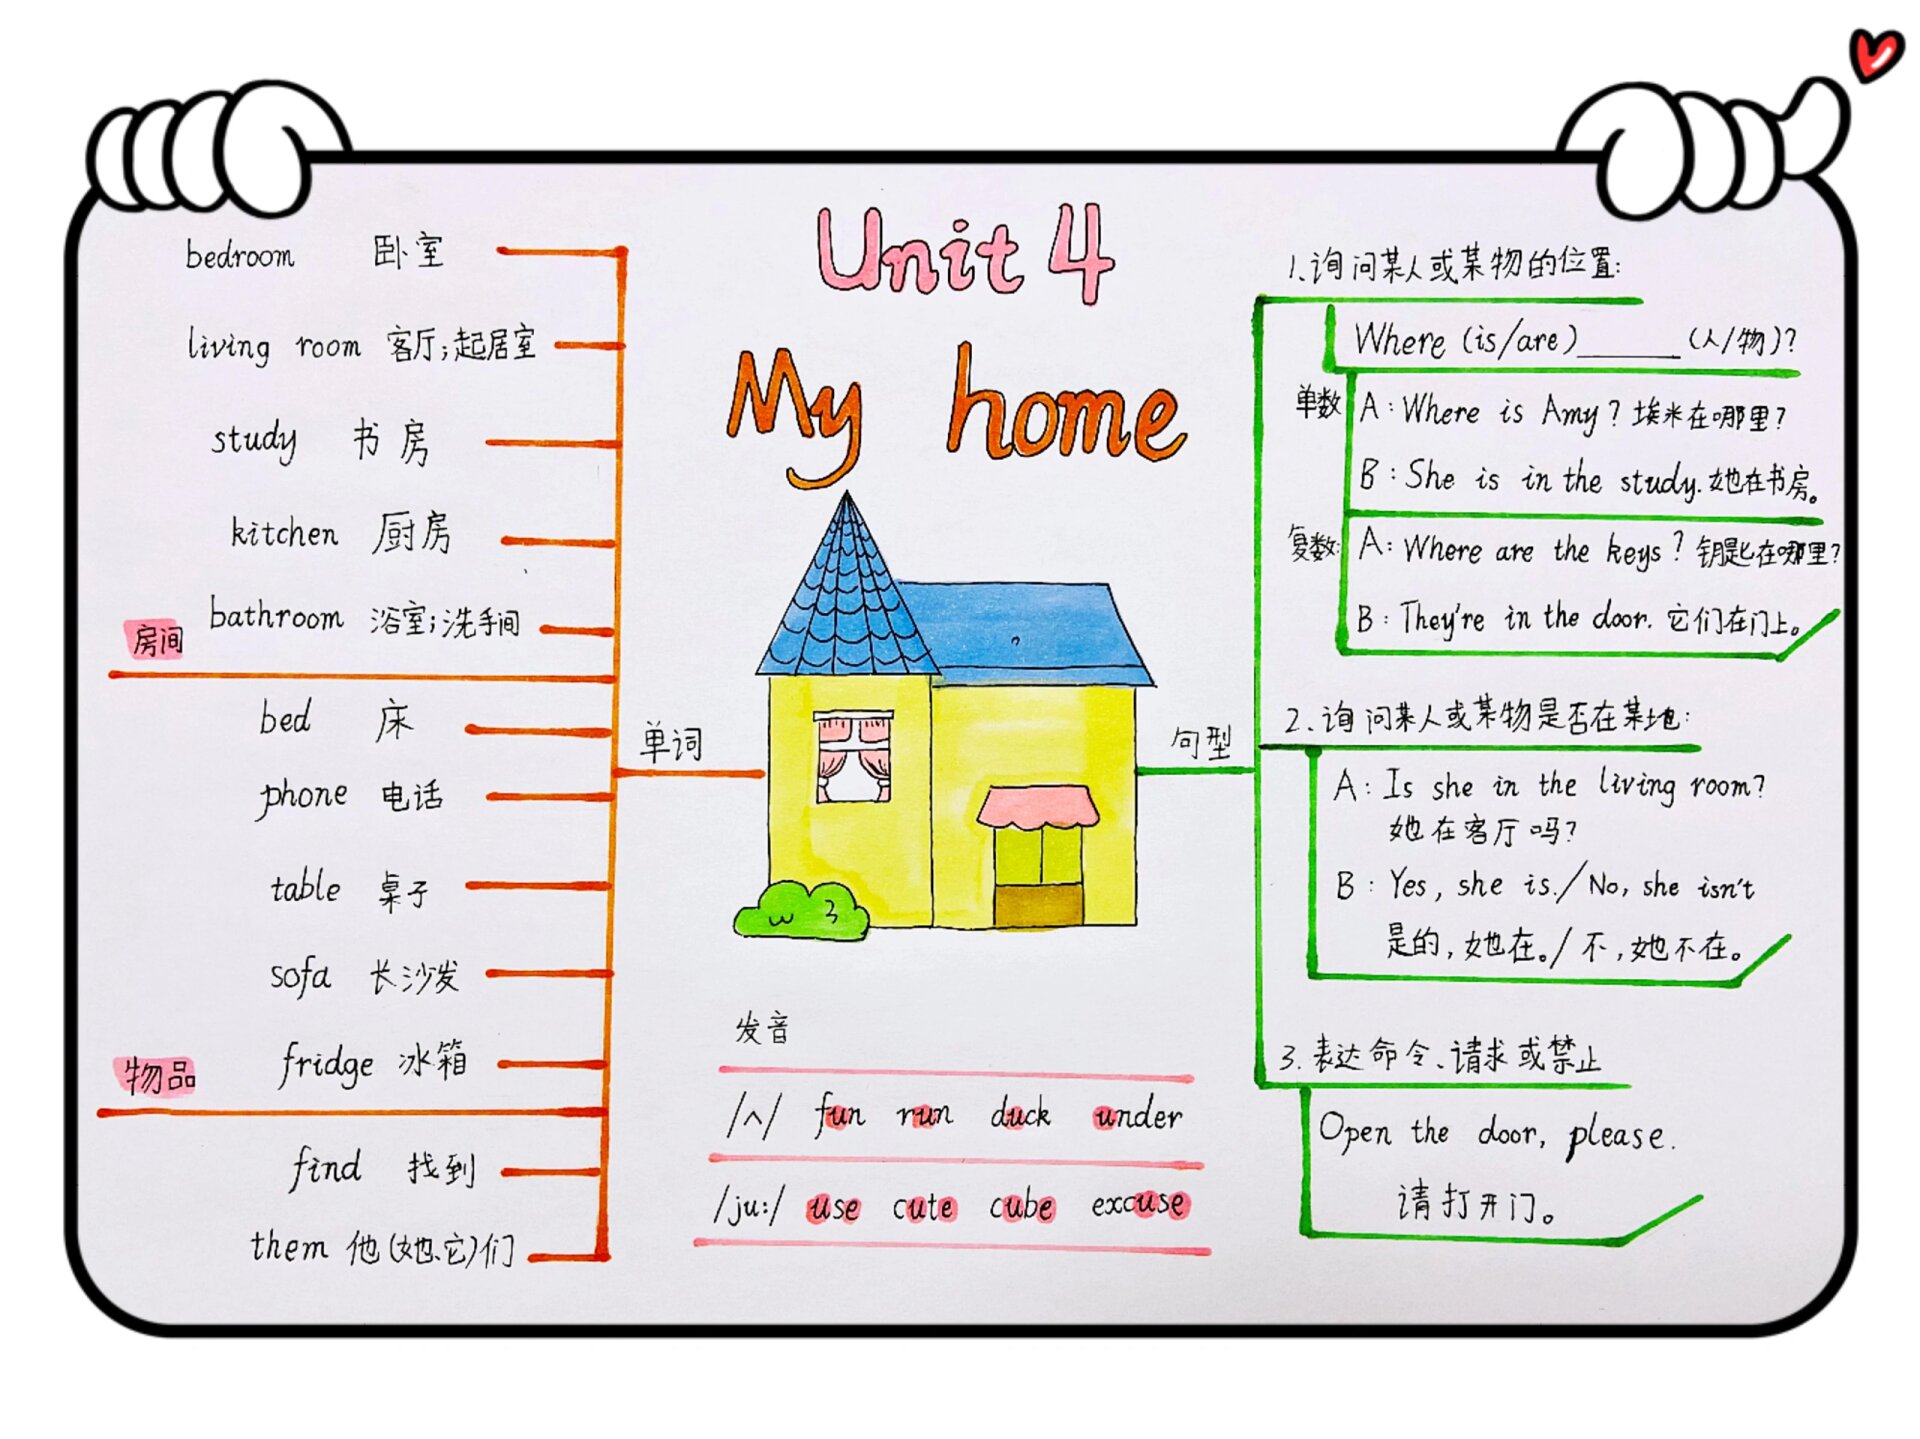 Unit 4
My home
单词
bedroom 卧室
living room 客厅;起居室
study 书房
kitchen 厨房
bathroom 浴室;洗手间
房间
bed 床
phone 电话
table 桌子
sofa 长沙发
fridge 冰箱
物品
find 找到
them 他(她、它)们
发音
/ʌ/ fun run duck under
/ju:/ use cute cube excuse
句型
1、询问某人或某物的位置:
Where (is/are)______(人/物)?
单数 A: Where is Amy? 埃米在哪里?
B: She is in the study. 她在书房。
复数: A: Where are the keys? 钥匙在哪里?
B: They're in the door. 它们在门上。
2、询问某人或某物是否在某地:
A: Is she in the living room?
她在客厅吗?
B: Yes, she is./No, she isn't
是的,她在。/不,她不在。
3.表达命令、请求或禁止
Open the door, please.
请打开门。